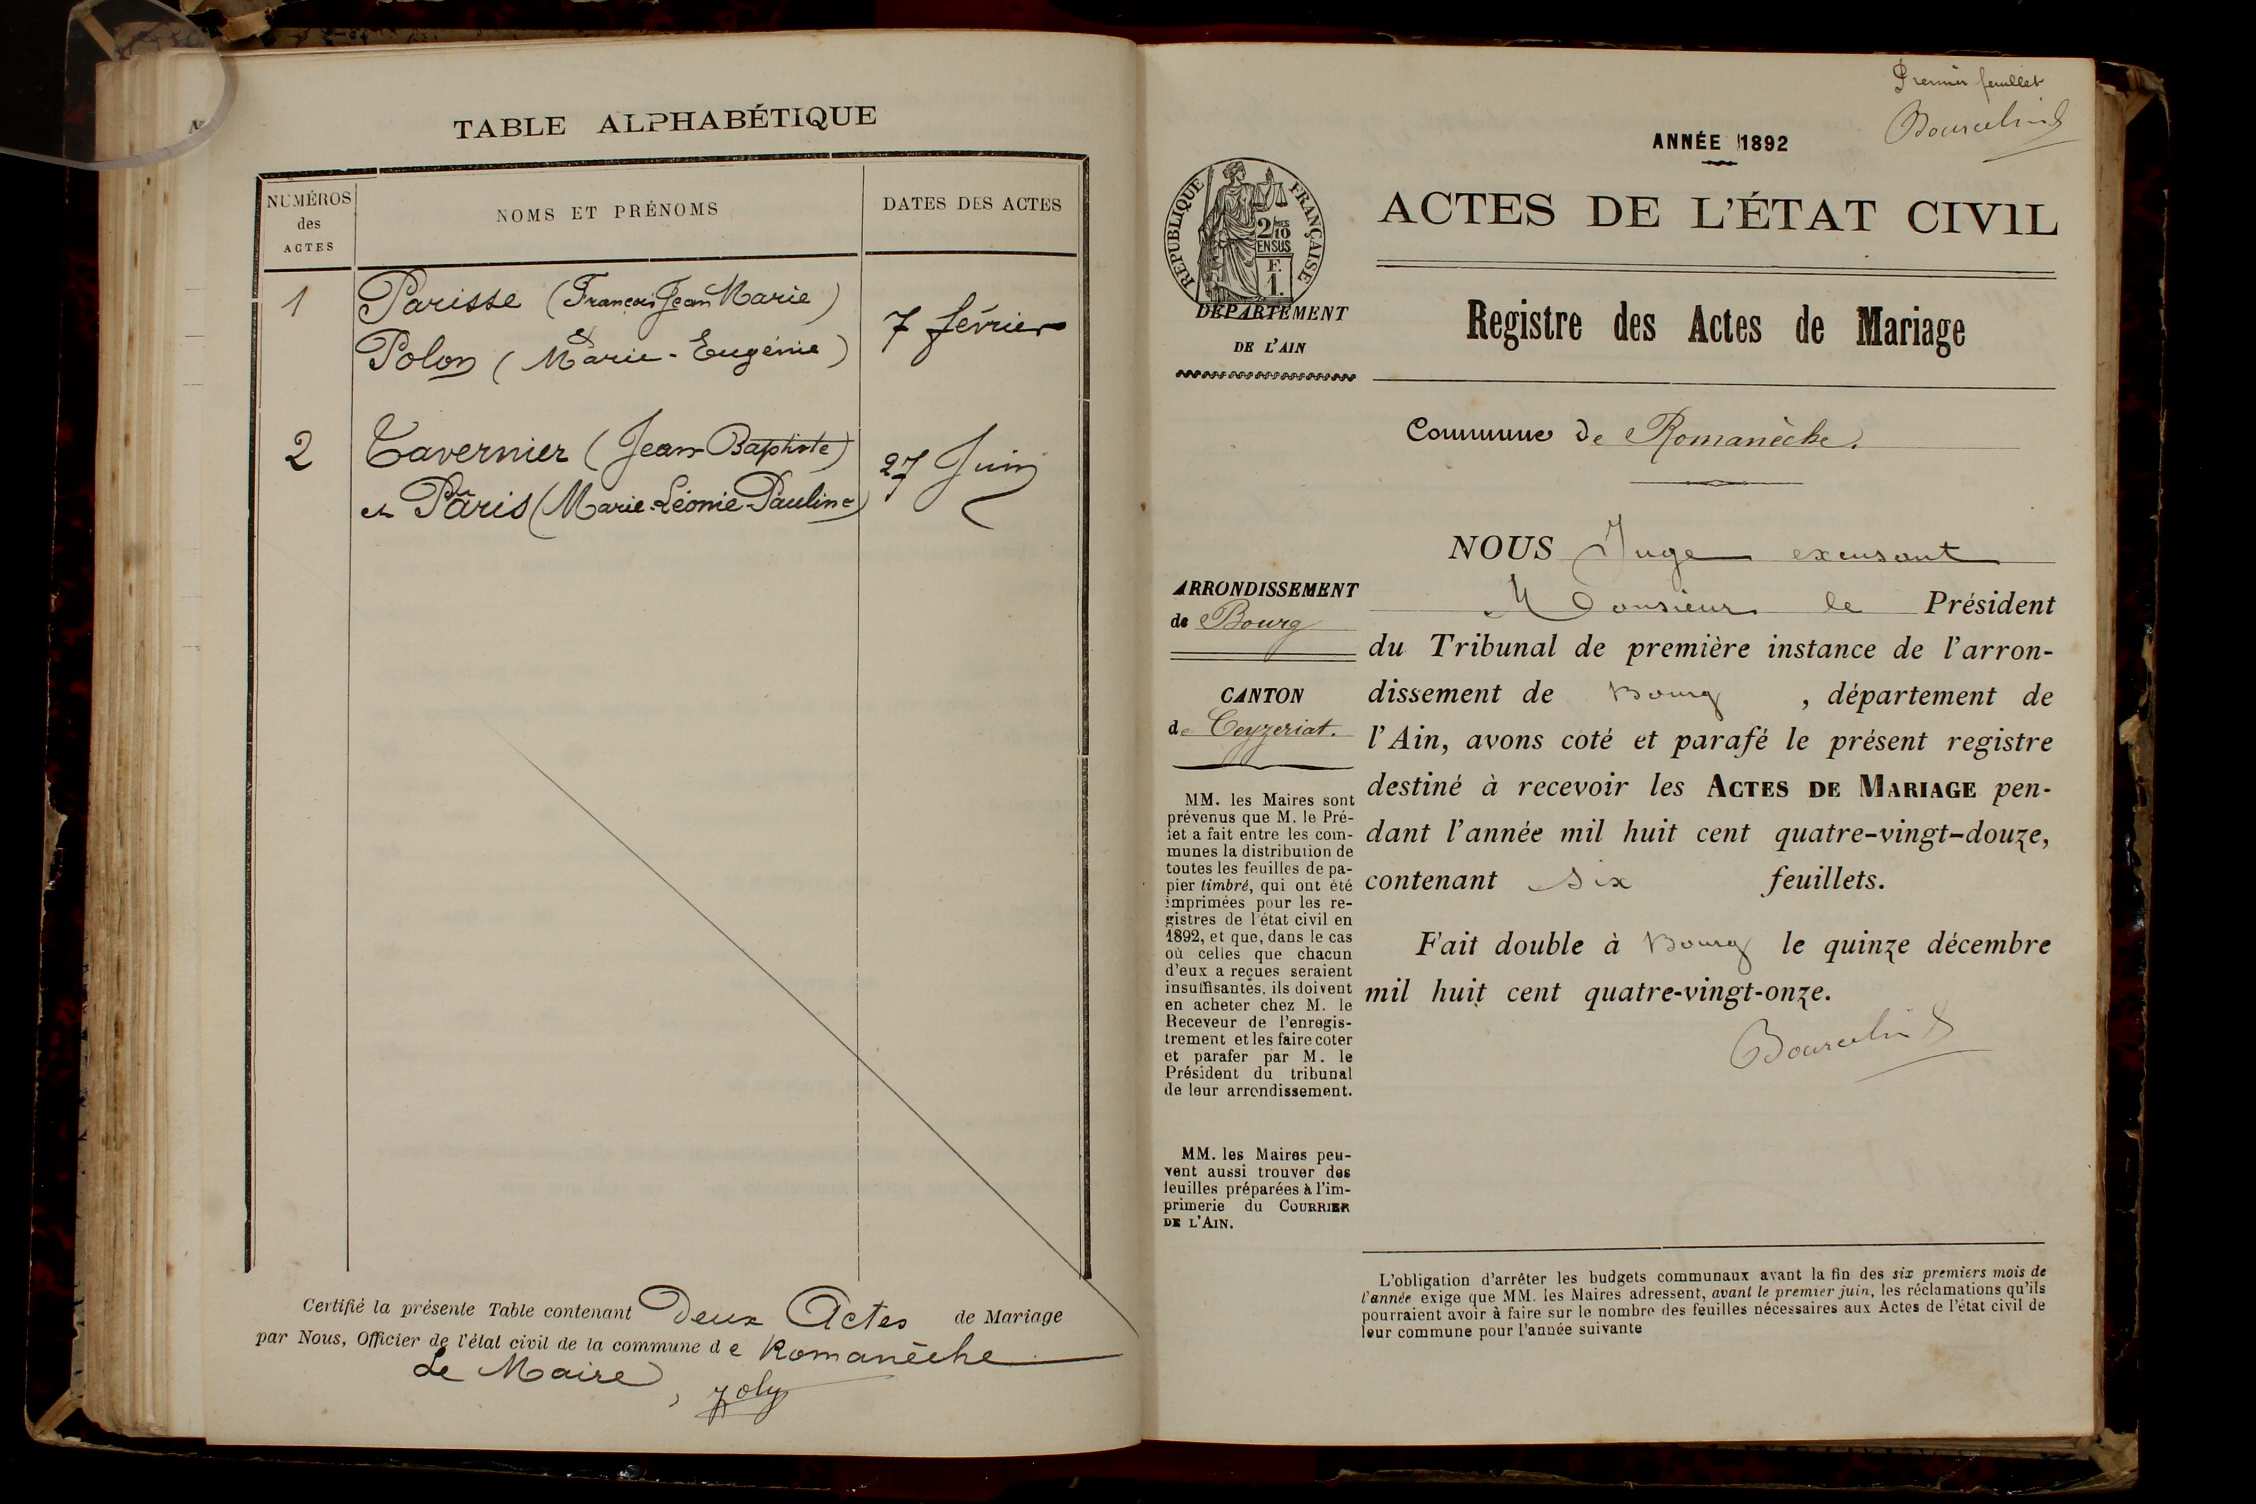 TABLE ALPHABÉTIQUE
NUMÉROS
des
ACTES
NOMS ET PRÉNOMS
DATES DES ACTES
1
Parisse (François Jean Marie)
et
Polon (Marie-Eugénie)
7 février
2
Tavernier (Jean-Baptiste)
et Pâris (Marie-Léonie-Pauline)
27 Juin
Certifié la présente Table contenant Deux Actes de Mariage
par Nous, Officier de l'état civil de la commune de Romanèche
Le Maire,
Joly
Premier feuillet
ANNÉE 1892
RÉPUBLIQUE FRANÇAISE
2/10
EN SUS
F.
1.
ACTES DE L'ÉTAT CIVIL
DÉPARTEMENT
DE L'AIN
Registre des Actes de Mariage
Commune de Romanèche.
ARRONDISSEMENT
de Bourg
CANTON
de Ceyzeriat.
MM. les Maires sont
prévenus que M. le Pré-
fet a fait entre les com-
munes la distribution de
toutes les feuilles de pa-
pier timbré, qui ont été
imprimées pour les re-
gistres de l'état civil en
1892, et que, dans le cas
où celles que chacun
d'eux a reçues seraient
insuffisantes, ils doivent
en acheter chez M. le
Receveur de l'enregis-
trement et les faire coter
et parafer par M. le
Président du tribunal
de leur arrondissement.
MM. les Maires peu-
vent aussi trouver des
feuilles préparées à l'im-
primerie du COURRIER
DE L'AIN.
NOUS Juge excusant
Monsieur le Président
du Tribunal de première instance de l'arron-
dissement de Bourg , département de
l'Ain, avons coté et parafé le présent registre
destiné à recevoir les ACTES DE MARIAGE pen-
dant l'année mil huit cent quatre-vingt-douze,
contenant six feuillets.
Fait double à Bourg le quinze décembre
mil huit cent quatre-vingt-onze.
L'obligation d'arrêter les budgets communaux avant la fin des six premiers mois de
l'année exige que MM. les Maires adressent, avant le premier juin, les réclamations qu'ils
pourraient avoir à faire sur le nombre des feuilles nécessaires aux Actes de l'état civil de
leur commune pour l'année suivante